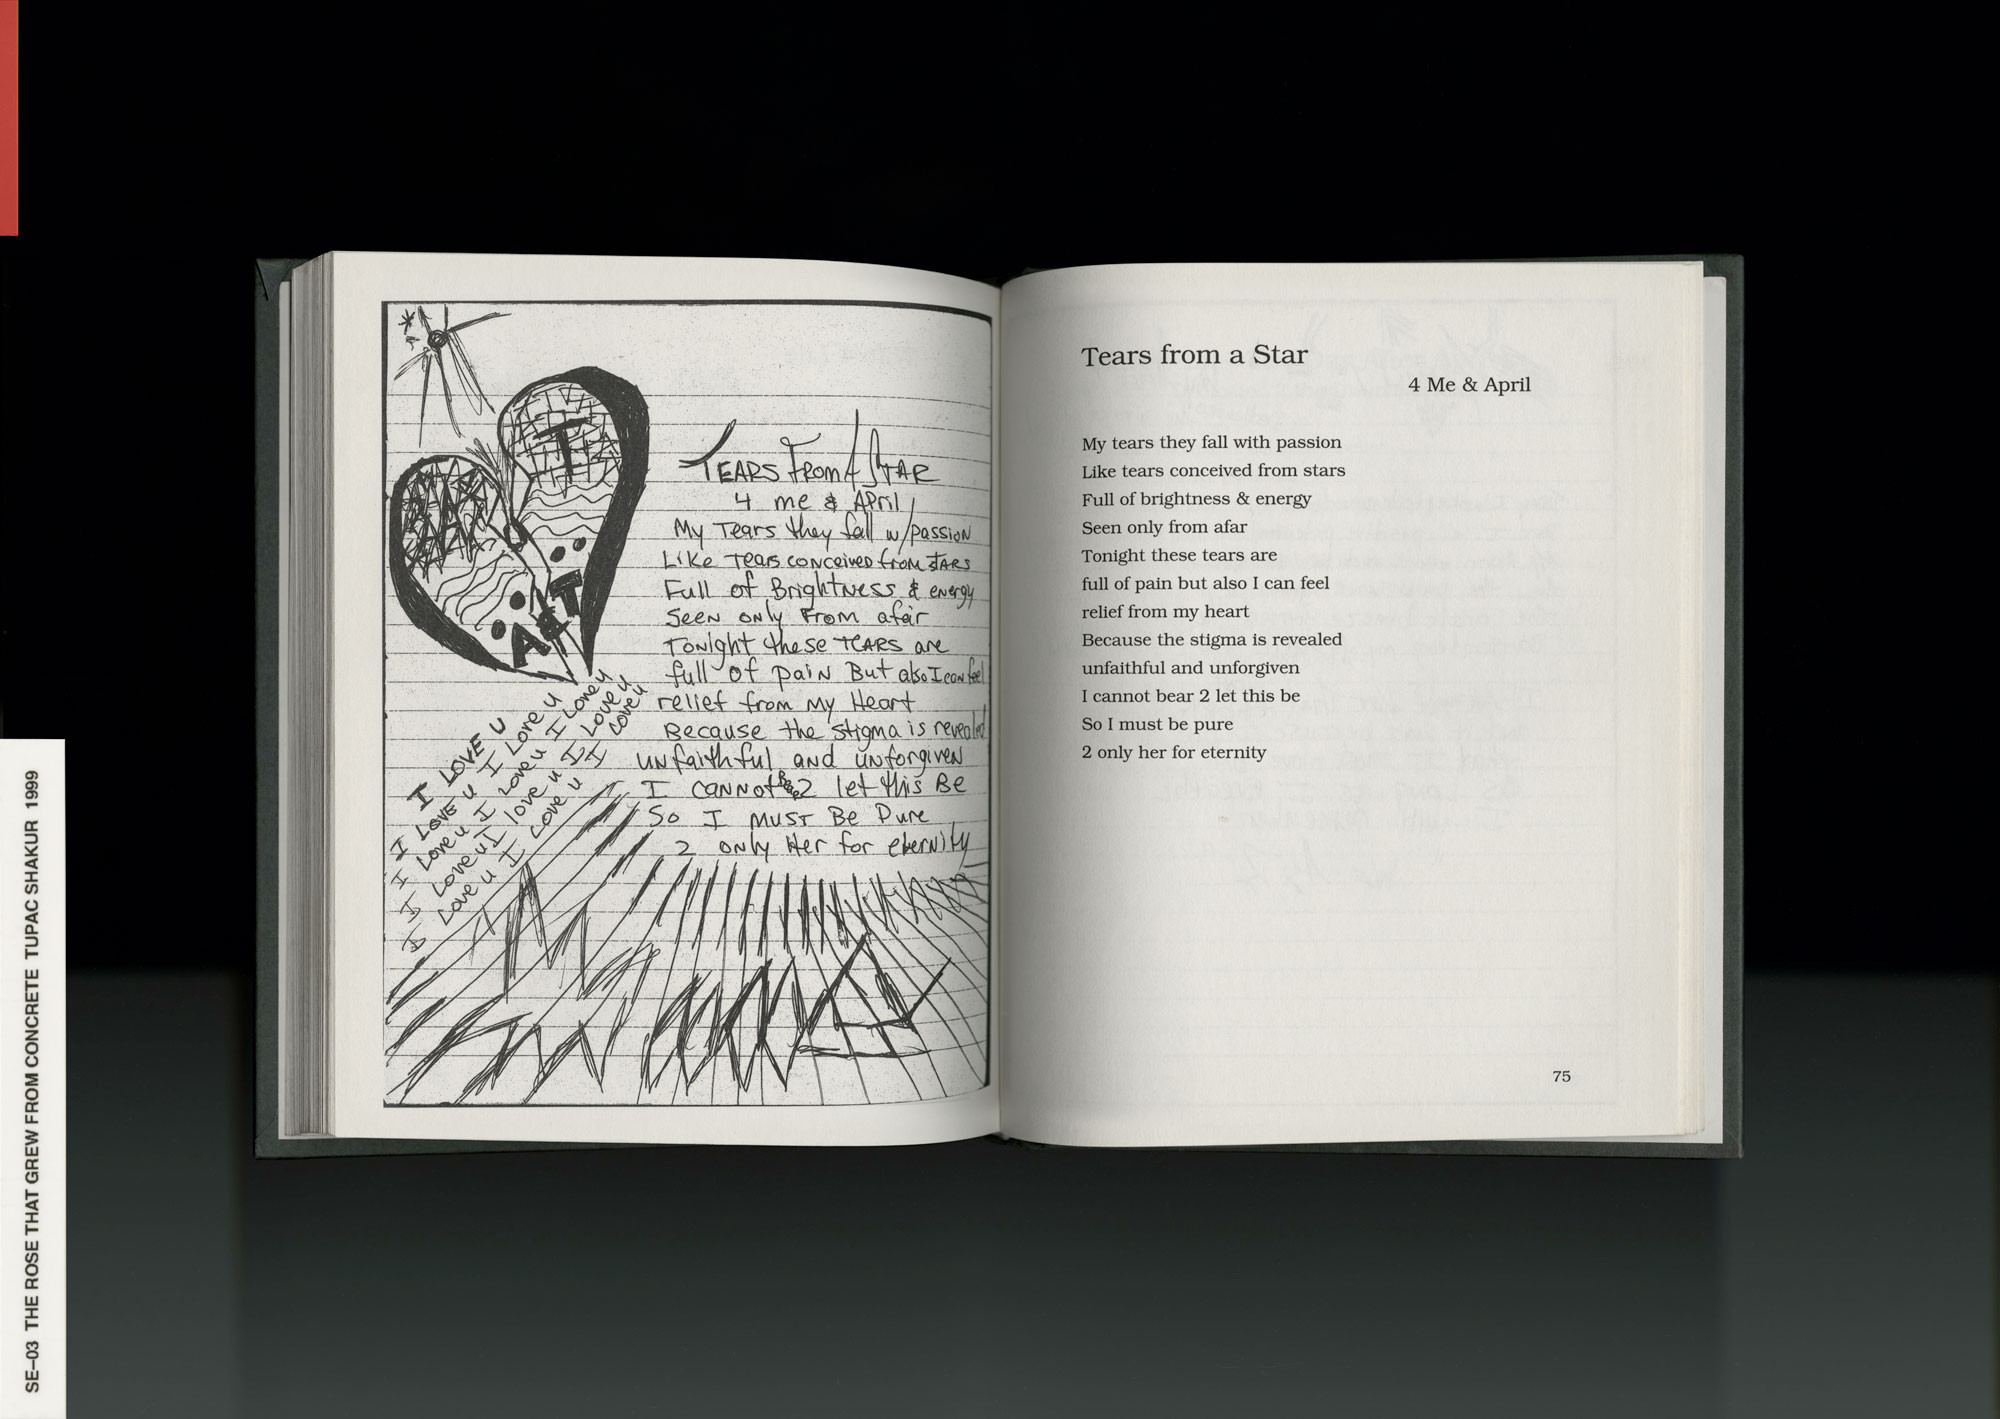 TEARS FROM A STAR
4 me & April
My Tears they fall w/passion
Like Tears conceived from STARS
Full of Brightness & energy
Seen only From afar
Tonight these TEARS are
full of pain But also I can feel
relief from My Heart
Because the stigma is revealed
unfaithful and unforgiven
I cannot Bear 2 let this Be
So I MUST Be Pure
2 only Her for eternity
T
I LOVE U
I Love u I Love u
I Love u I Love u I Love u
I Love u I Love u I Love u
I Love u I Love u I Love u
Tears from a Star
4 Me & April
My tears they fall with passion
Like tears conceived from stars
Full of brightness & energy
Seen only from afar
Tonight these tears are
full of pain but also I can feel
relief from my heart
Because the stigma is revealed
unfaithful and unforgiven
I cannot bear 2 let this be
So I must be pure
2 only her for eternity
75
SE–03 THE ROSE THAT GREW FROM CONCRETE TUPAC SHAKUR 1999